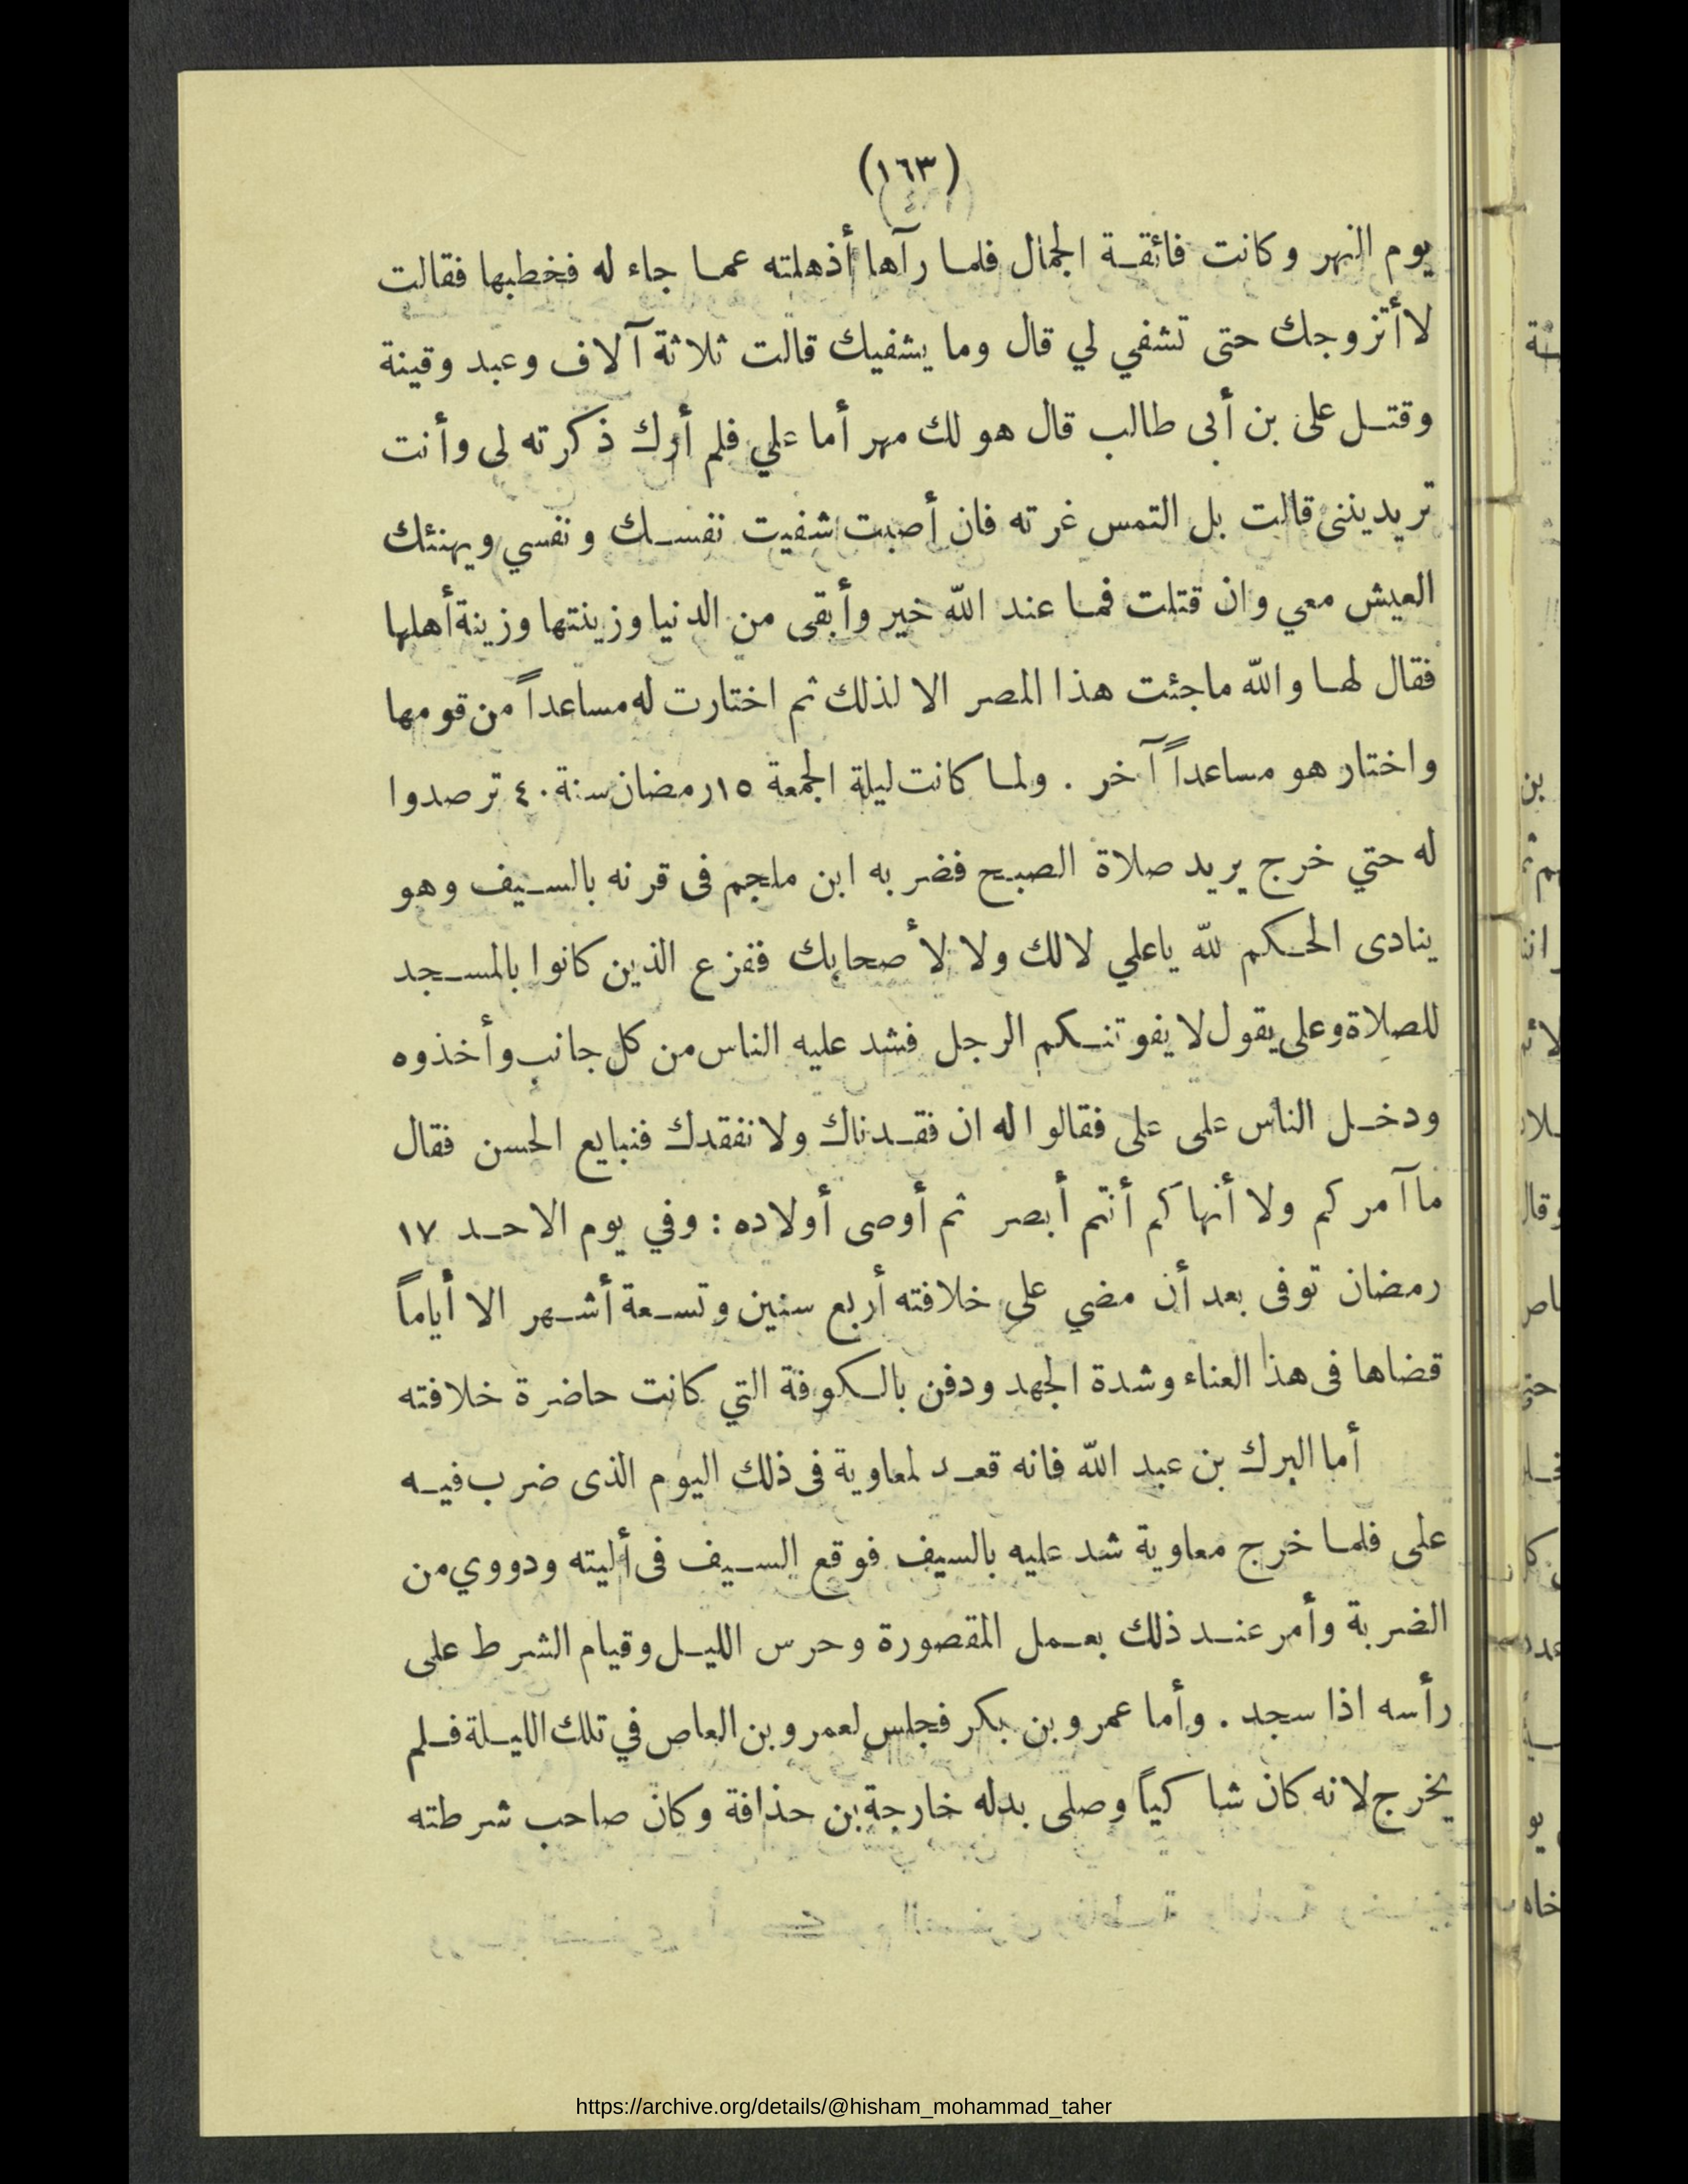 (١٦٣)
يوم النهر وكانت فائقة الجمال فلما رآها أذهلته عما جاء له فخطبها فقالت
لا أتزوجك حتى تشفي لي قال وما يشفيك قالت ثلاثة آلاف وعبد وقينة
وقتل على بن أبى طالب قال هو لك مهر أما علي فلم أرك ذكرته لى وأنت
تريديننى قالت بل التمس غرته فان أصبت شفيت نفسك ونفسي ويهنئك
العيش معي وان قتلت فما عند الله خير وأبقى من الدنيا وزينتها وزينة أهلها
فقال لها والله ماجئت هذا المصر الا لذلك ثم اختارت له مساعداً من قومها
واختار هو مساعداً آخر . ولما كانت ليلة الجمعة ١٥ رمضان سنة ٤٠ ترصدوا
له حتي خرج يريد صلاة الصبح فضربه ابن ملجم فى قرنه بالسيف وهو
ينادى الحكم لله ياعلي لالك ولا لأصحابك ففزع الذين كانوا بالمسجد
للصلاة وعلى يقول لا يفوتنكم الرجل فشد عليه الناس من كل جانب وأخذوه
ودخل الناس على على فقالوا له ان فقدناك ولا نفقدك فنبايع الحسن فقال
ما آمركم ولا أنهاكم أنتم أبصر ثم أوصى أولاده : وفي يوم الاحد ١٧
رمضان توفى بعد أن مضي على خلافته أربع سنين وتسعة أشهر الا أياماً
قضاها فى هذا العناء وشدة الجهد ودفن بالكوفة التي كانت حاضرة خلافته
أما البرك بن عبد الله فانه قعد لمعاوية فى ذلك اليوم الذى ضرب فيه
على فلما خرج معاوية شد عليه بالسيف فوقع السيف فى أليته ودووي من
الضربة وأمر عند ذلك بعمل المقصورة وحرس الليل وقيام الشرط على
رأسه اذا سجد . وأما عمرو بن بكر فجلس لعمرو بن العاص في تلك الليلة فلم
يخرج لانه كان شاكياً وصلى بدله خارجة بن حذافة وكان صاحب شرطته
https://archive.org/details/@hisham_mohammad_taher